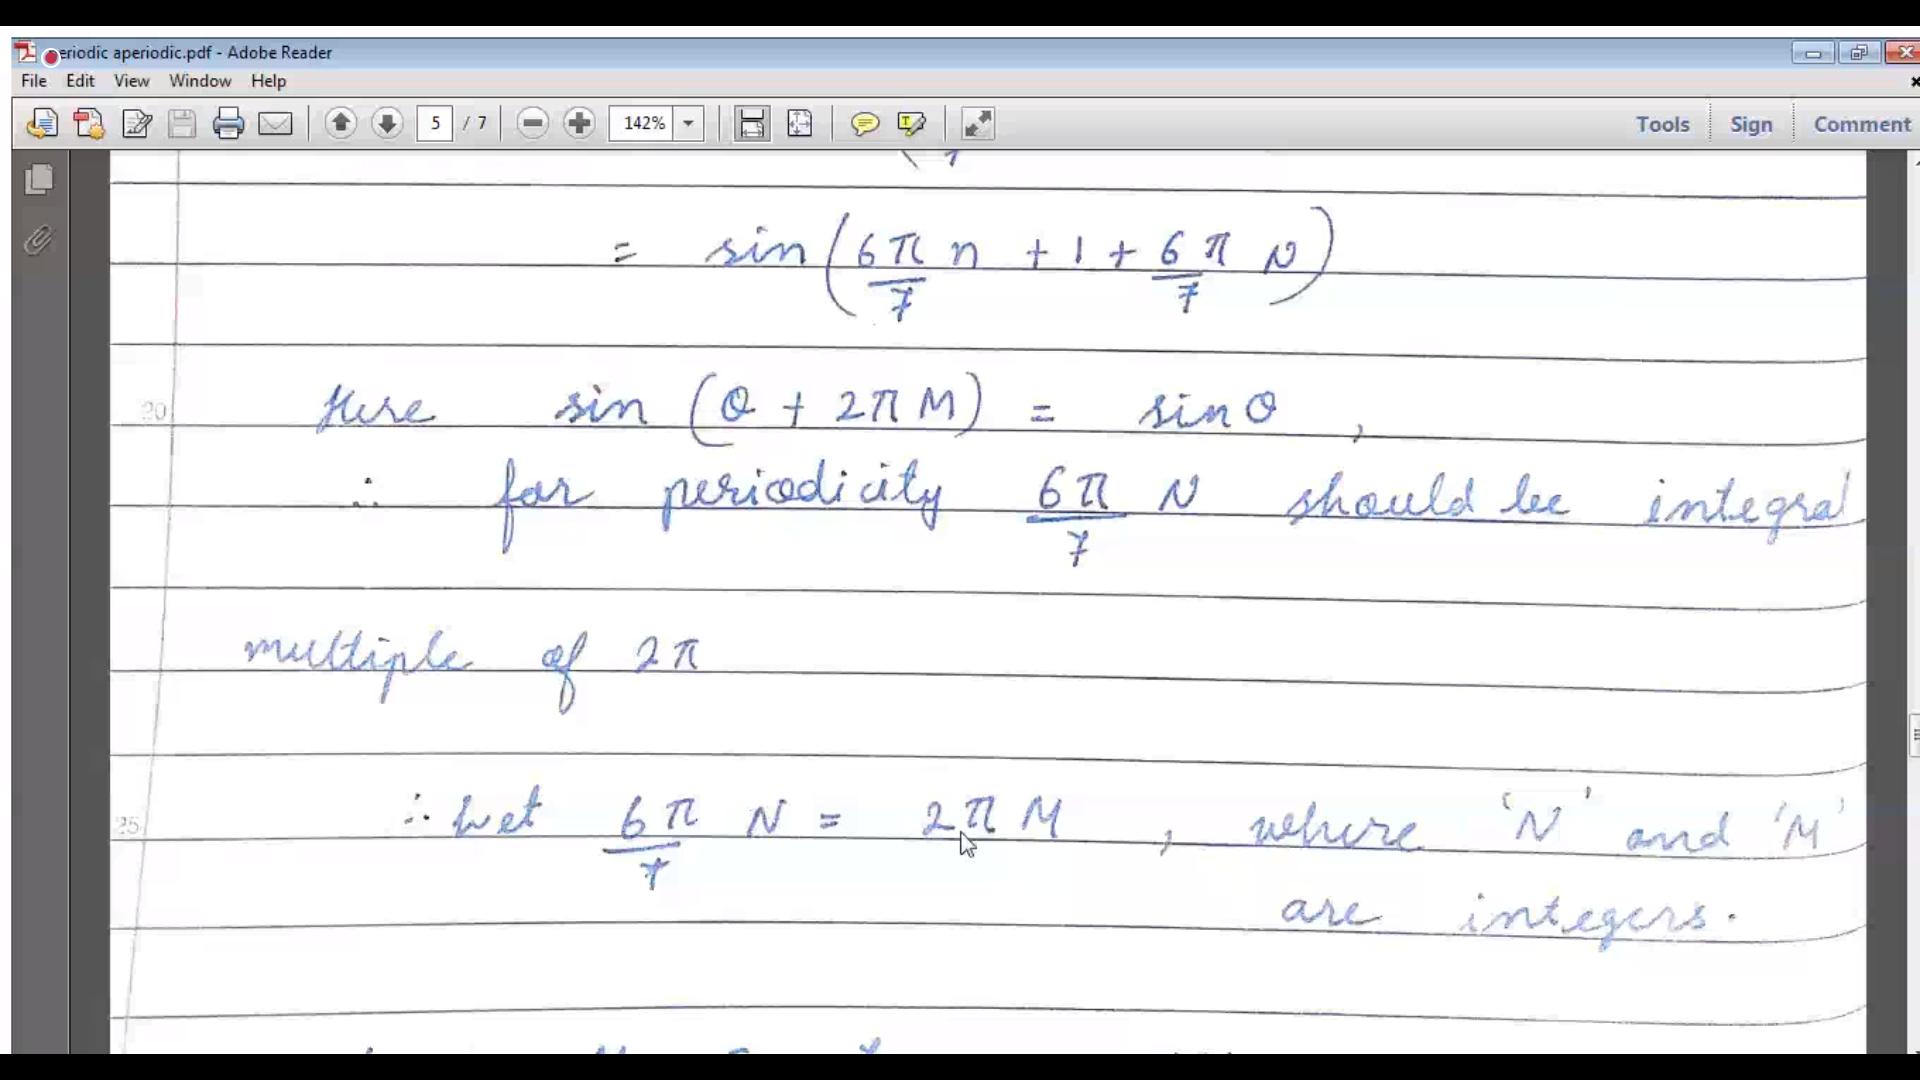 eriodic aperiodic.pdf - Adobe Reader
File Edit View Window Help
5 / 7 142% Tools Sign Comment
= sin(6π/7 n + 1 + 6π/7 N)
20 Here sin (θ + 2πM) = sinθ ,
∴ for periodicity 6π/7 N should be integral
multiple of 2π
25 ∴ Let 6π/7 N = 2πM , where 'N' and 'M'
are integers.